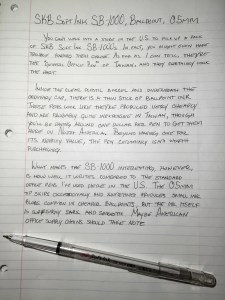 SKB Soft Ink SB-1000, Ballpoint, 0.5mm
You can't win a store in the U.S. to pick up a pack
of SKB Soft Ink SB-1000s. In fact, you might even have
trouble finding them online. As far as I can tell, they're
the "School Office Pen" of Taiwan, and they certainly look
the part.
Inside the clear, simple barrel, and underneath the
ordinary cap, there is a thin stick of ballpoint ink.
These pens look like they're produced very cheaply
and are probably quite inexpensive in Taiwan, though
you'll be paying around one dollar per pen to get them
here in North America. Beyond having one for
its novelty value, the pen certainly isn't worth
purchasing.
What makes the SB-1000 interesting, however,
is how well it writes, compared to the standard
office pens I've used prior in the U.S. The 0.5mm
tip skips occasionally and sometimes produces small ink
blobs common in cheaper ballpoints, but the ink itself
is surprisingly dark and smooth. Maybe American
office supply chains should take note.